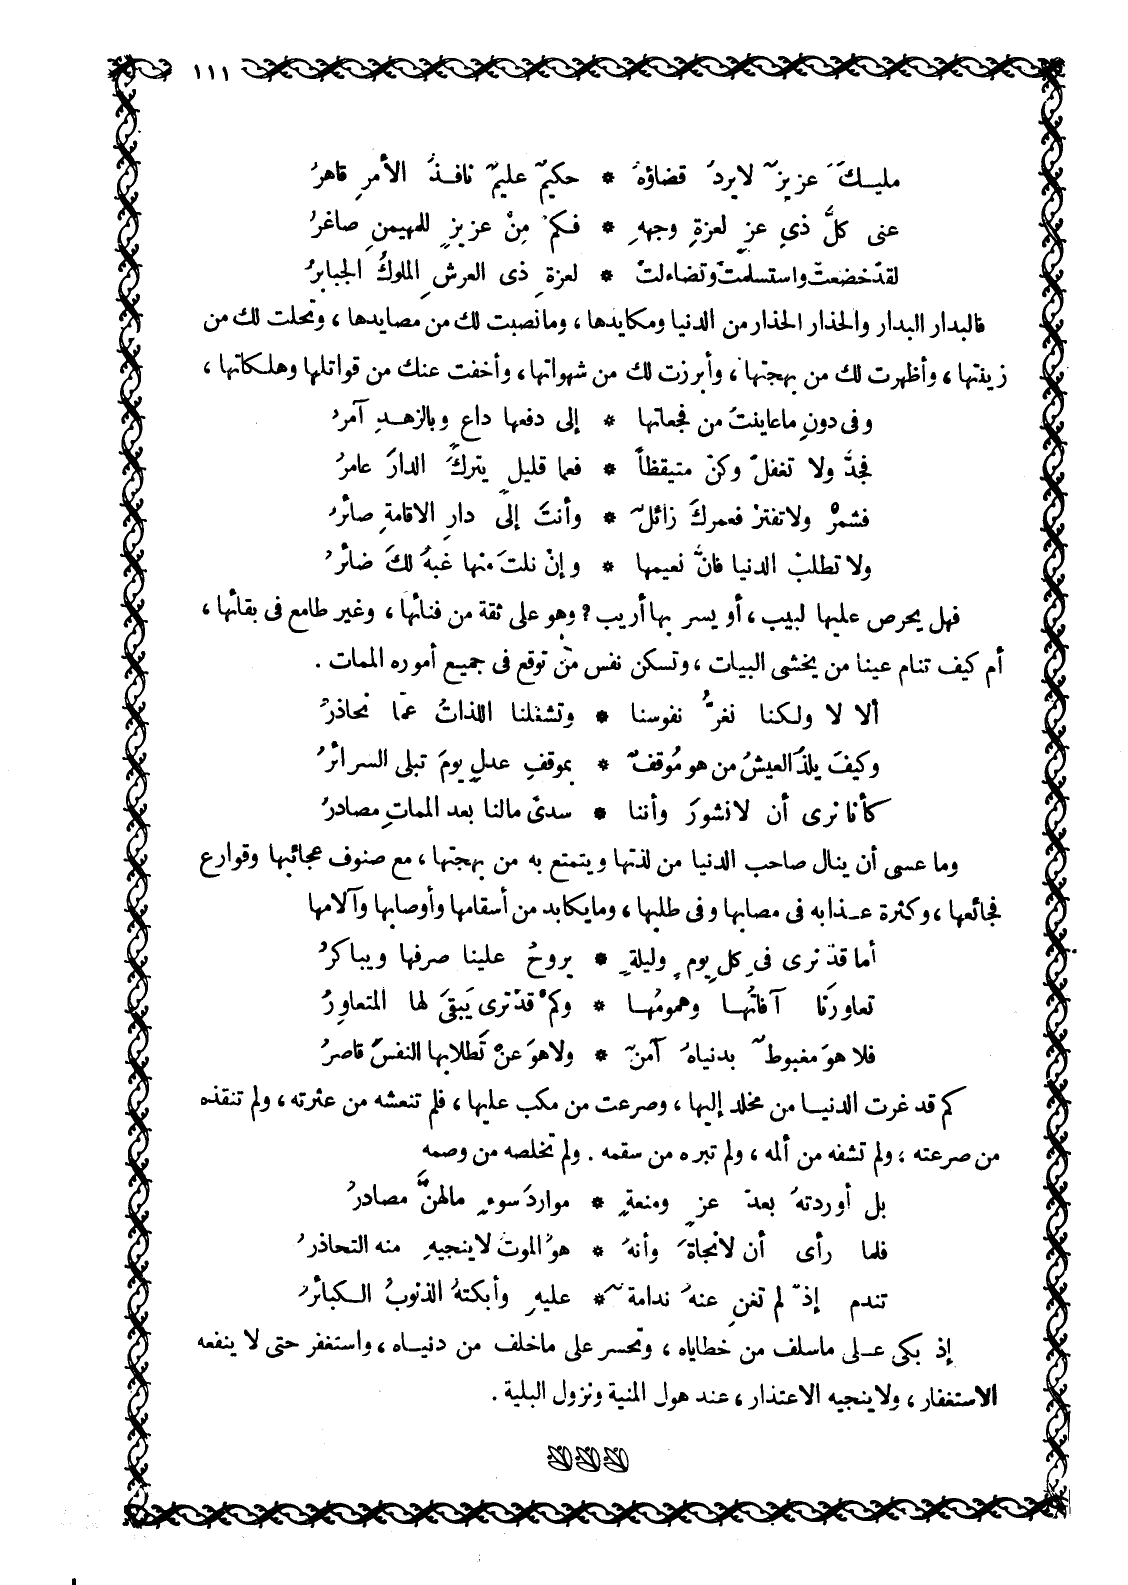 ١١١
مليـك عزيز لا يرد قضاؤه * حكيم عليم نافـذ الأمر قاهر
عنى كلُّ ذي عز لعزة وجهه * فكم مِنْ عزيز للمهيمن صاغر
لقد خضعت واستسلمت وتضاءلت * لعزة ذى العرش الملوك الجبابر
فالبدار البدار والحذار الحذار من الدنيا ومكايدها ، وما نصبت لك من مصايدها ، وتحلت لك من
زينتها ، وأظهرت لك من بهجتها ، وأبرزت لك من شهواتها ، وأخفت عنك من قواتلها وهلكاتها ،
وفى دون ما عاينت من فجعاتها * إلى دفعها داع وبالزهـد آمر
فجدَّ ولا تغفل وكن متيقظاً * فعما قليل يترك الدار عامر
فشمر ولا تفتر فعمرك زائل * وأنت إلى دار الاقامة صائر
ولا تطلب الدنيا فانَّ نعيمها * وإن نلت منها غبه لك ضائر
فهل يحرص عليها لبيب ، أو يسر بها أريب ؟ وهو على ثقة من فنائها ، وغير طامع فى بقائها ،
أم كيف تنام عينا من يخشى البيات ، وتسكن نفس من توقع فى جميع أموره الممات .
ألا لا ولكنا نغرُّ نفوسنا * وتشغلنا اللذات عمّا نحاذر
وكيف يلذ العيش من هو مُوقف * بموقف عدل يوم تبلى السرائر
كأنا نرى أن لا نشور وأننا * سدى مالنا بعد الممات مصادر
وما عسى أن ينال صاحب الدنيا من لذتها ويتمتع به من بهجتها ، مع صنوف عجائبها وقوارع
فجائعها ، وكثرة عـذابه فى مصابها وفى طلبها ، وما يكابد من أسقامها وأوصابها وآلامها
أما قد نرى فى كل يوم وليلة * يروح علينا صرفها ويباكر
تعاورنا آفاتُهـا وهمومُهـا * وكم قد نرى يَبقى لها المتعاور
فلا هو مغبوط بدنياه آمن * ولا هو عن تَطلابها النفس قاصر
كم قد غرت الدنيـا من مخلد إليها ، وصرعت من مكب عليها ، فلم تنعشه من عثرته ، ولم تنقذه
من صرعته ، ولم تشفه من ألمه ، ولم تبره من سقمه . ولم تخلصه من وصمه
بل أوردته بعد عز ومنعة * موارد سوء مالهنَّ مصادر
فلما رأى أن لا نجاة وأنه * هو الموت لا ينجيه منه التحاذر
تندم إذ لم تغن عنه ندامة * عليه وأبكته الذنوب الكبائر
إذ بكى عـلى ما سلف من خطاياه ، وتحسر على ما خلف من دنيـاه ، واستغفر حتى لا ينفعه
الاستغفار ، ولا ينجيه الاعتذار ، عند هول المنية ونزول البلية .